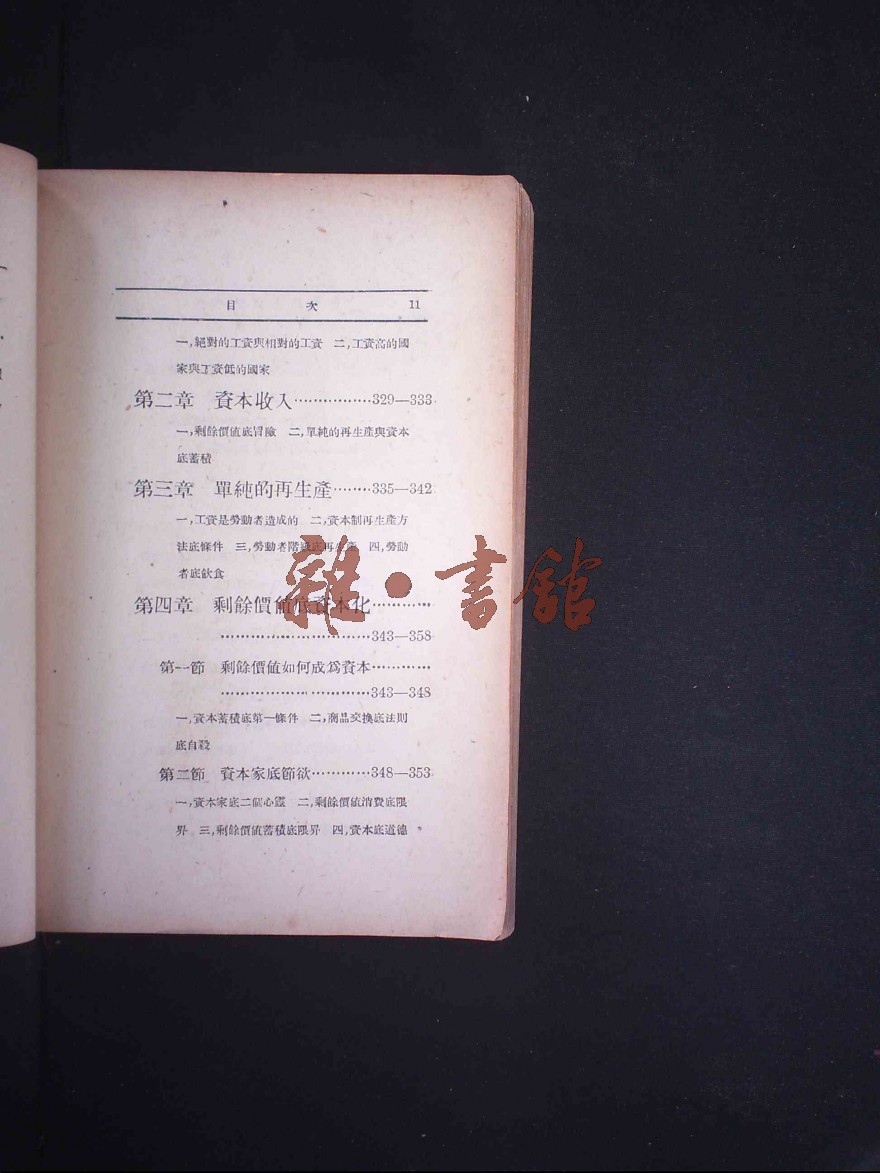 目 次 11
一,絕對的工資與相對的工資 二,工資高的國
家與工資低的國家
第二章 資本收入················329—333
一,剩餘價值底冒險 二,單純的再生產與資本
底蓄積
第三章 單純的再生產········335—342
一,工資是勞動者造成的 二,資本制再生產方
法底條件 三,勞動者階級底再生產 四,勞動
者底飲食
雜·書館
第四章 剩餘價值底資本化············
······························343—358
第一節 剩餘價值如何成爲資本············
······························343—348
一,資本蓄積底第一條件 二,商品交換底法則
底自殺
第二節 資本家底節欲············348—353
一,資本家底二個心靈 二,剩餘價值消費底限
界 三,剩餘價值蓄積底限界 四,資本底道德